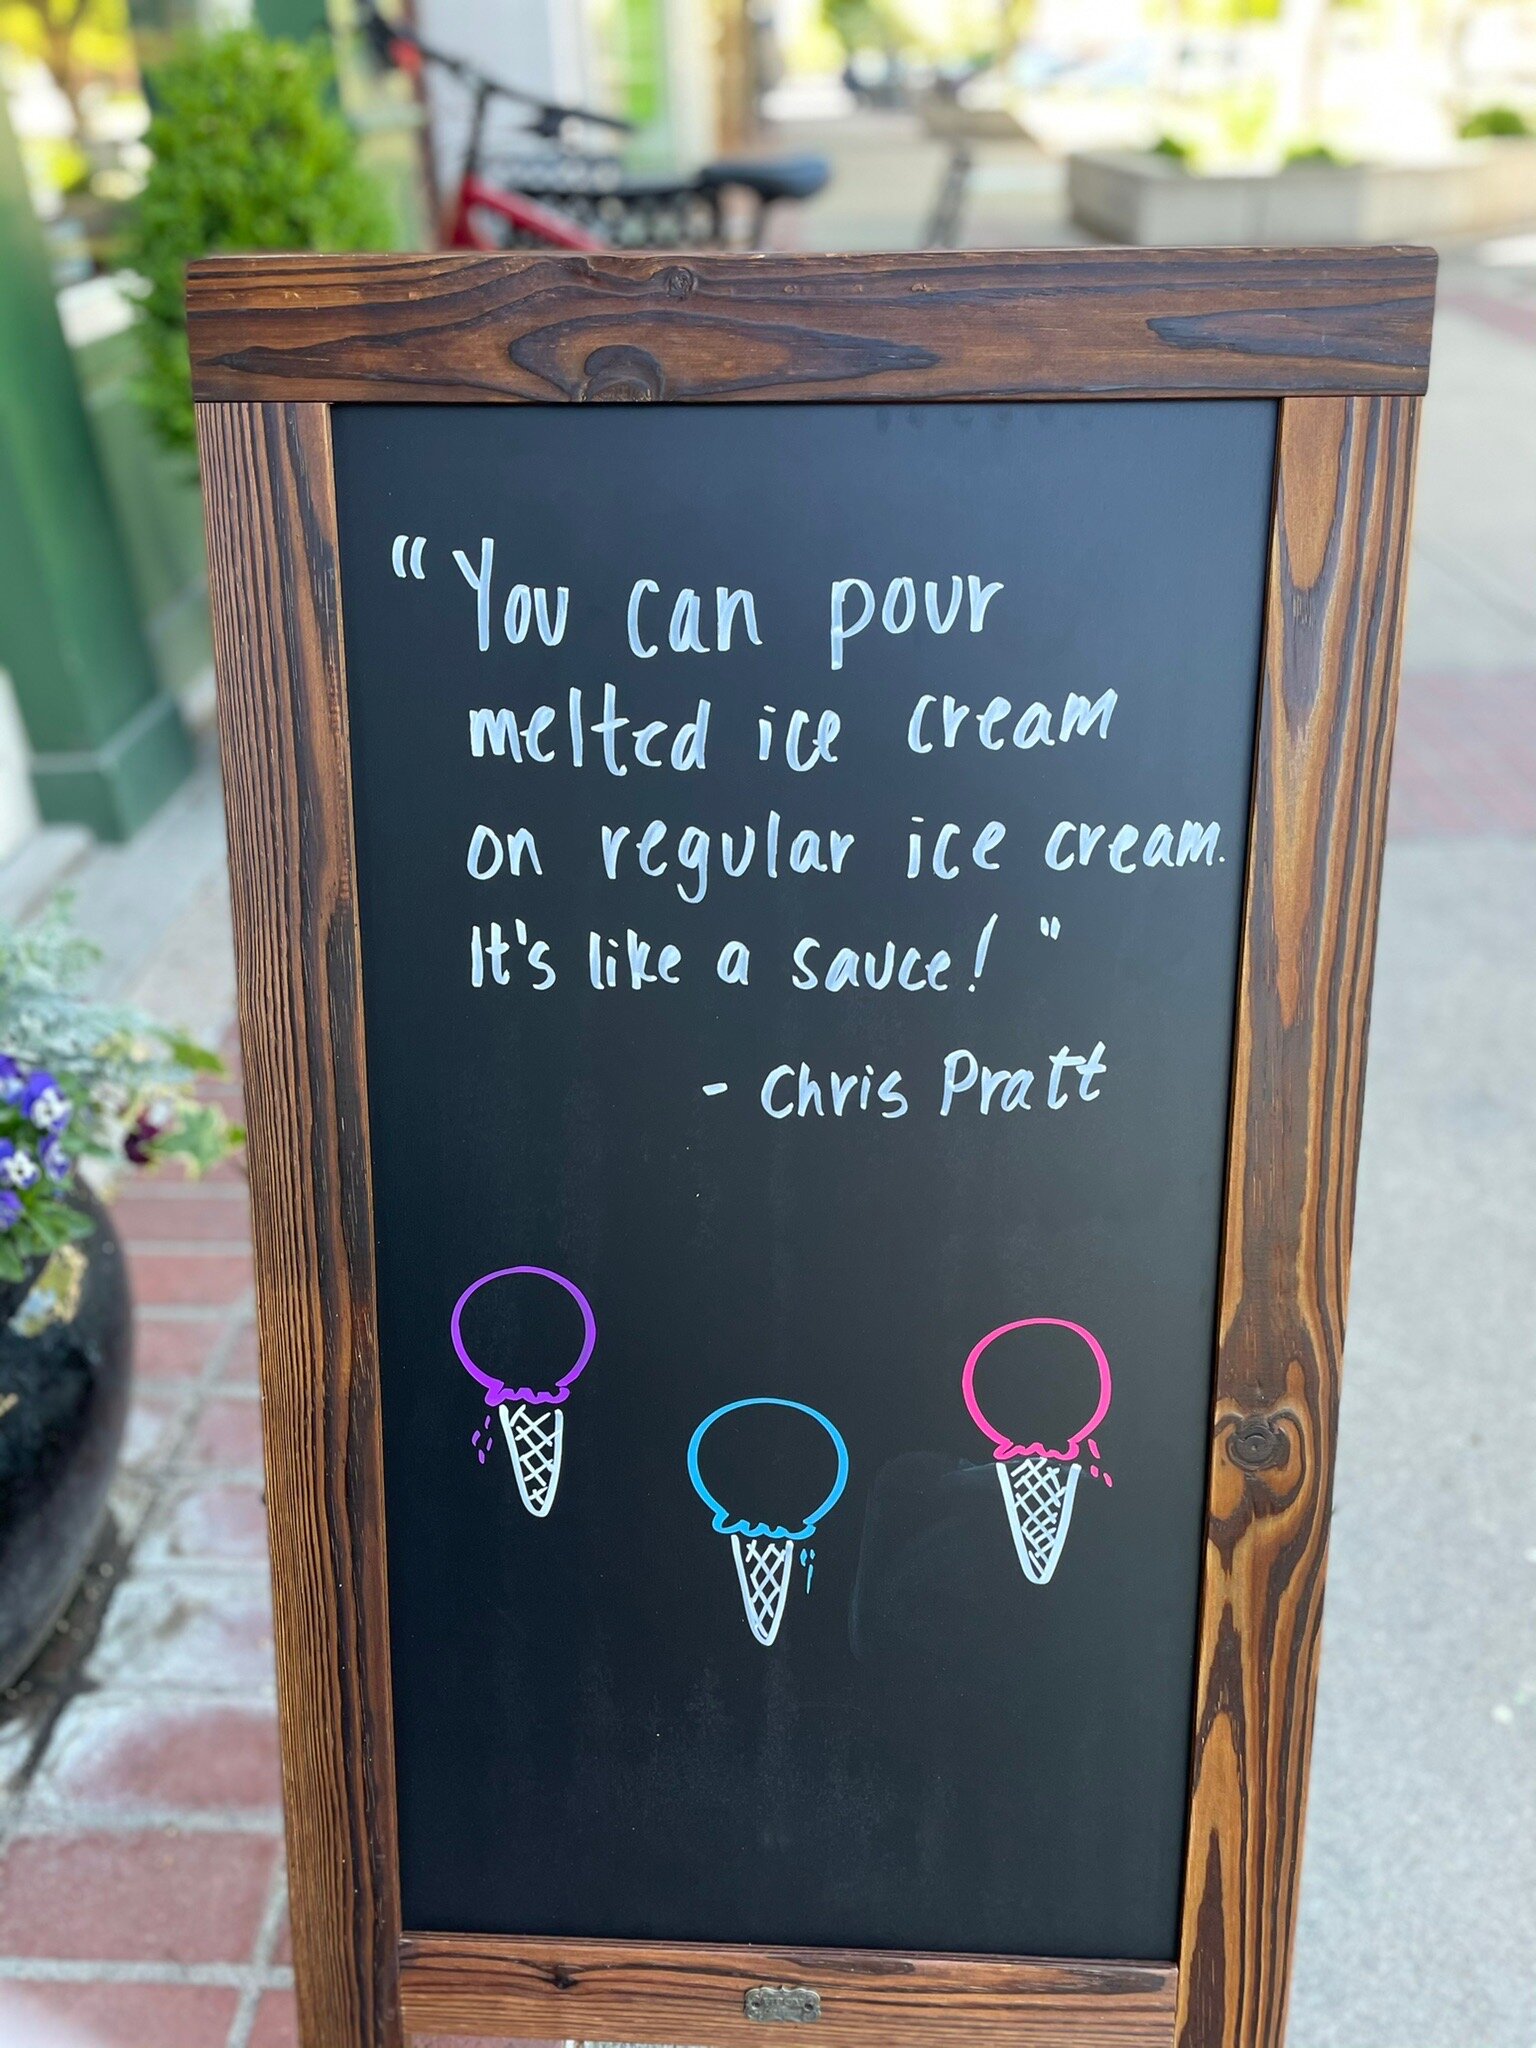 "You can pour
melted ice cream
on regular ice cream.
It's like a sauce!"
- Chris Pratt